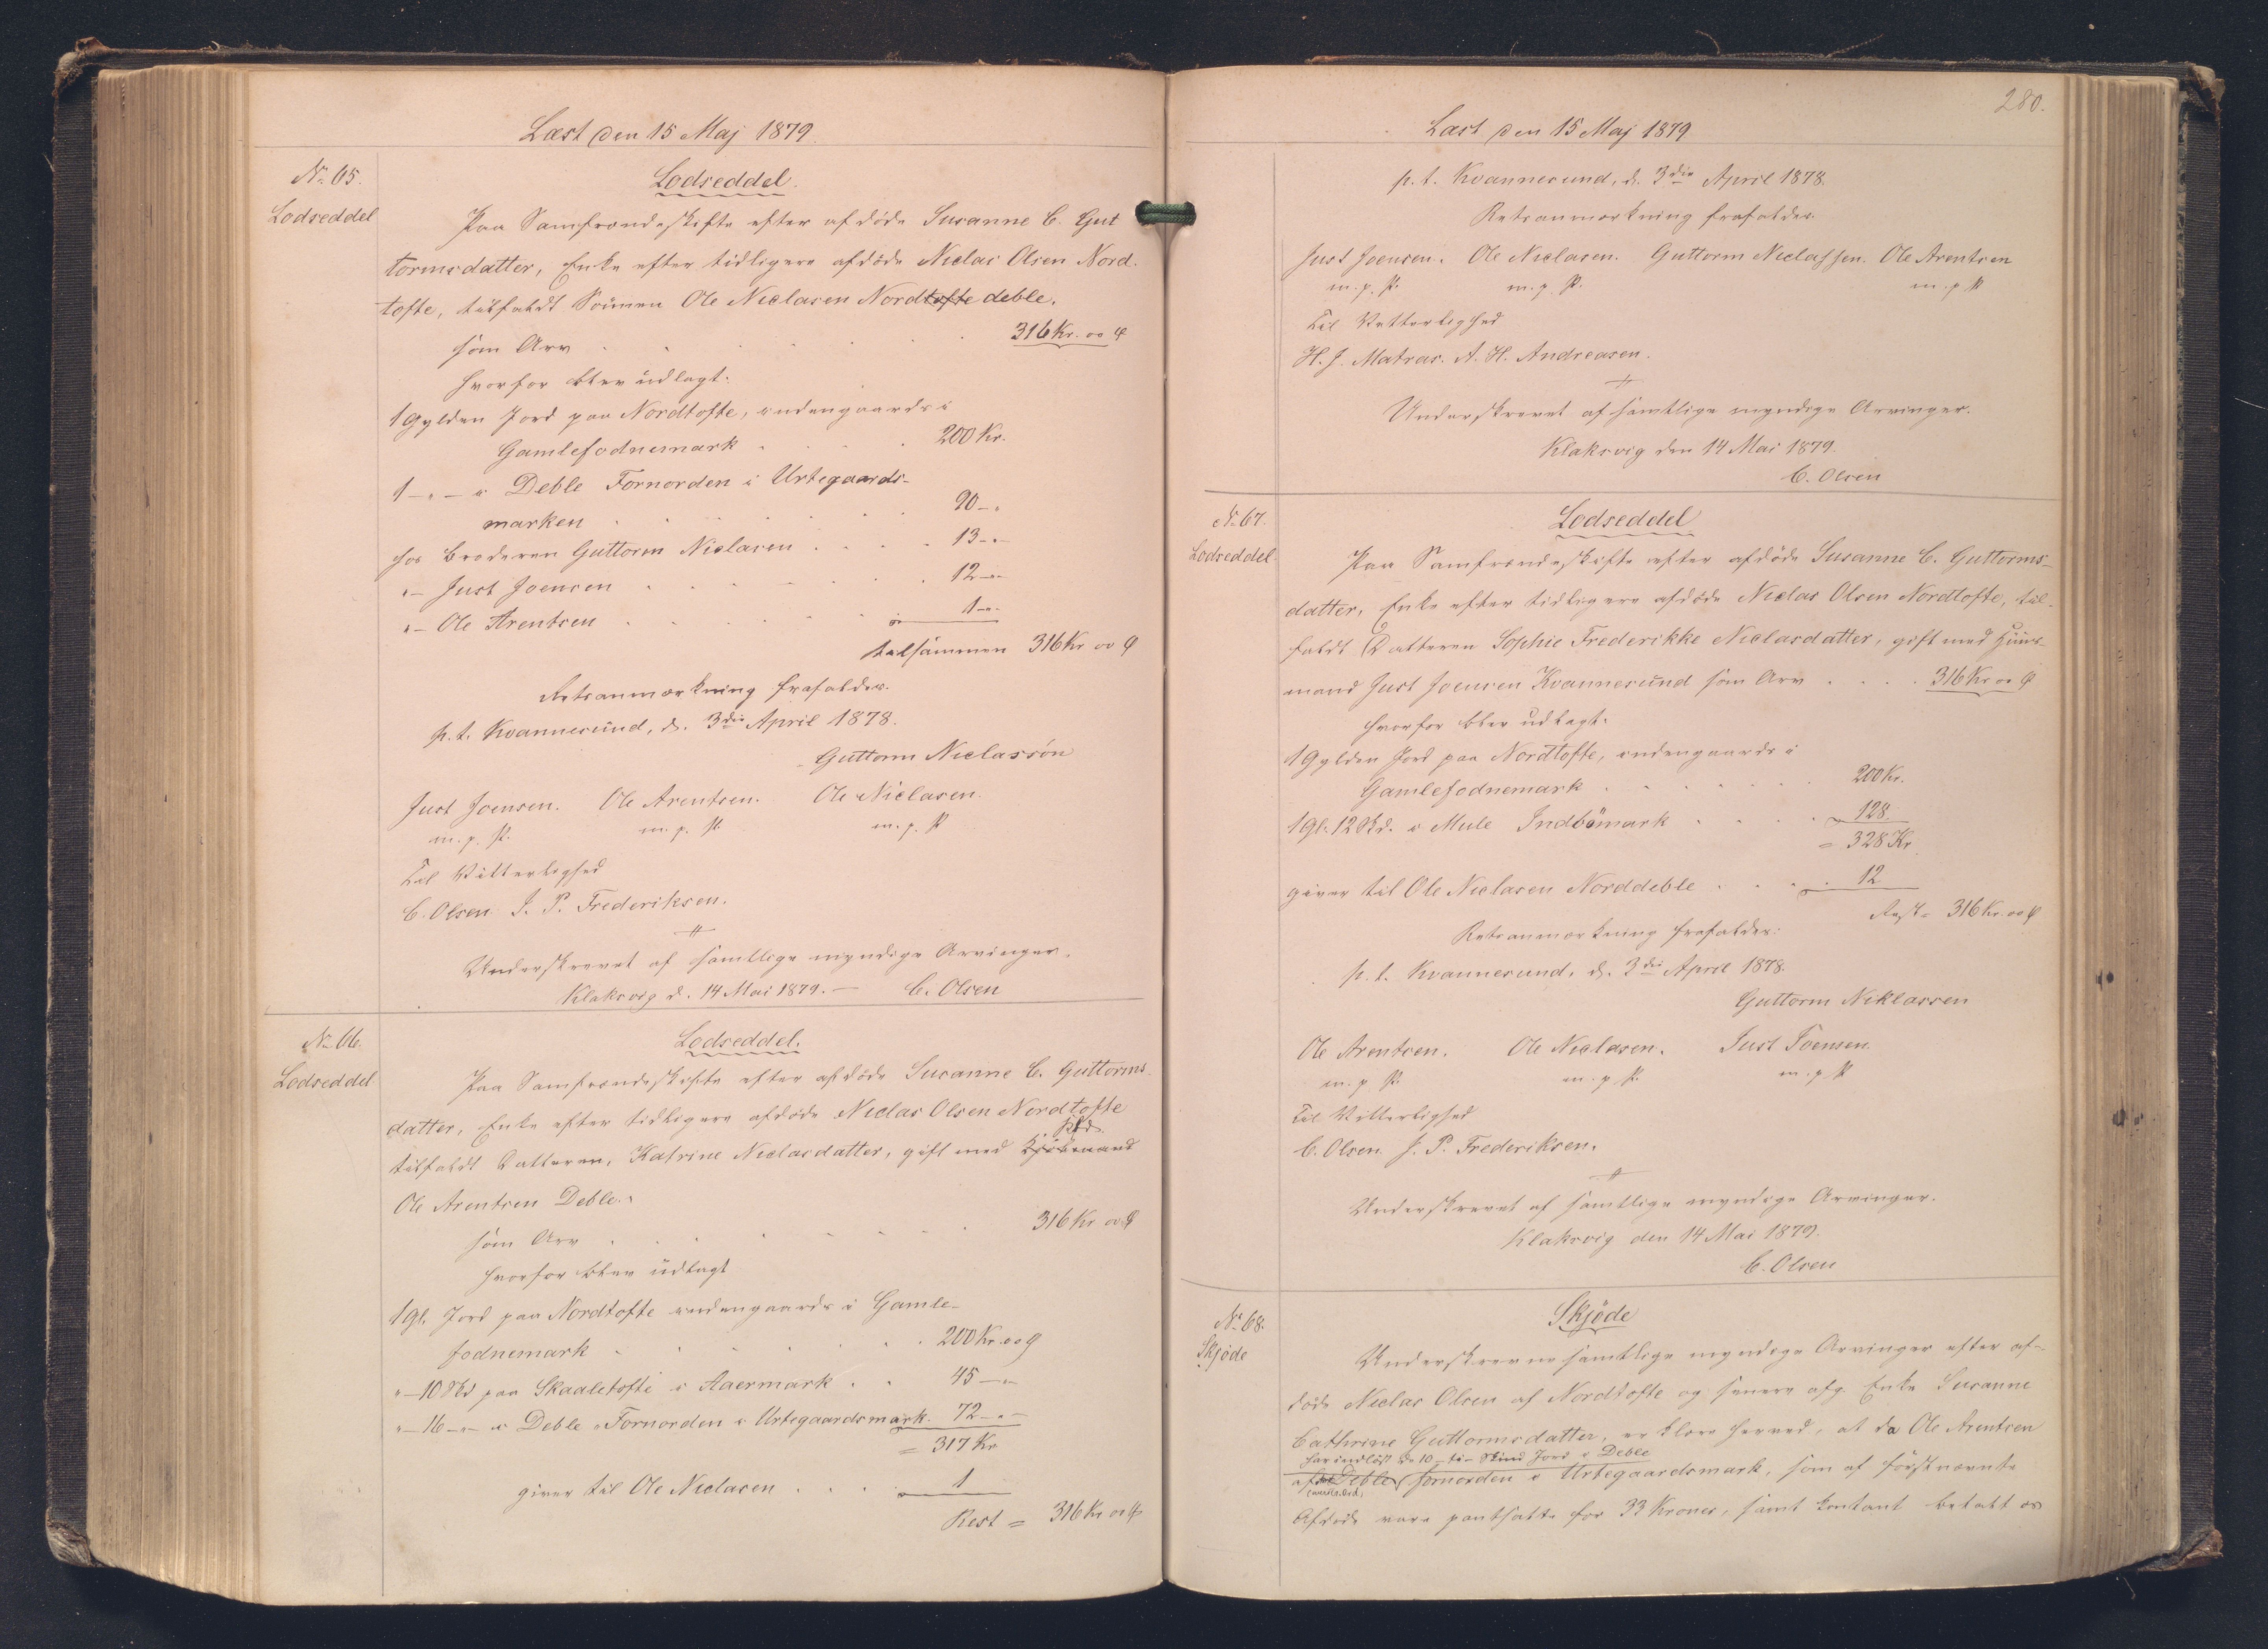 Læst den 15 Maj 1879.
No 65.
Lodseddel
Lodseddel.
Paa Samfrændeskifte efter afdøde Susanne C. Gut
tormsdatter, Enke efter tidligere afdøde Niclas Olsen Nord-
tofte, tilfaldt Sönnen Ole Niclasen Nordtofte deble.
som Arv . . . . . . 316 Kr. oo Ø
hvorfor blev udlagt:
1 Gylden Jord paa Nordtofte, indengaards i
Gamlefodnemark . . . . 200 Kr.
1 - „ - i Deble Fornorden i Urtegaards-
marken . . . . . . 90 - „
hos Broderen Guttorm Niclasen . . . . 13 - „ -
„ - Just Joensen . . . . . . 12 - „ -
„ - Ole Arentsen . . . . . . 1 - „ -
tilsammen 316 Kr oo Ø
Retsanmærkning frafaldes.
p. t. Kvannesund, d. 3die April 1878.
Guttorm Niclassön
Just Joensen. Ole Arentsen. Ole Niclasen.
m. p. P. m. p. P. m. p. P
Til Vitterlighed
C. Olsen J. P. Frederiksen.
Underskrevet af samtlige myndige Arvinger.
Klaksvig d. 14 Mai 1879. — C. Olsen
No 66.
Lodseddel
Lodseddel.
Paa Samfrændeskifte efter afdøde Susanne C. Guttorms-
datter, Enke efter tidligere afdøde Niclas Olsen Nordtofte
tilfaldt Datteren, Katrine Niclasdatter, gift med Kjöbmand
Ole Arentsen Deble.
som Arv . . . . . . 316 Kr oo Ø
hvorfor blev udlagt
1 Gl. Jord paa Nordtofte indengaards i Gamle-
fodnemark . . . . . 200 Kr. oo Ø
„ - 10 Skd paa Skaaletofte i Aaermark . . 45 - „ -
„ - 16 - „ - i Deble Fornorden i Urtegaardsmark. 72 - „ -
= 317 Kr
giver til Ole Niclasen . . . . 1
Rest = 316 Kr oo Ø
280.
Læst den 15 Maj 1879
p. t. Kvannesund, d. 3die April 1878.
Retsanmærkning frafaldes
Just Joensen. Ole Niclasen. Guttorm Niclassen. Ole Arentsen
m. p. P. m. p. P. m. p P
Til Vitterlighed
H. J. Matras. A. H. Andreasen.
Underskrevet af samtlige myndige Arvinger.
Klaksvig den 14 Mai 1879.
C. Olsen
No 67.
Lodseddel
Lodseddel
Paa Samfrændeskifte efter afdøde Susanne C. Guttorms-
datter, Enke efter tidligere afdøde Niclas Olsen Nordtofte, til-
faldt Datteren Sophie Frederikke Niclasdatter, gift med Huus-
mand Just Joensen Kvannesund som Arv . . . . 316 Kr oo Ø
hvorfor blev udlagt:
1 Gylden Jord paa Nordtofte, indengaards i
Gamlefodnemark . . . . . . 200 Kr.
1 Gl. 12 Skd. i Mule Indbömark . . . . 128
= 328 Kr
giver til Ole Niclasen Norddeble . . . . 12
Rest = 316 Kr. oo Ø
Retsanmærkning frafaldes:
p. t. Kvannesund, d. 3die April 1878.
Guttorm Niklassen
Ole Arentsen. Ole Niclasen. Just Joensen
m. p. P. m. p. P. m. p. P
Til Vitterlighed
C. Olsen. J. P. Frederiksen.
Underskrevet af samtlige myndige Arvinger.
Klaksvig den 14 Mai 1879.
C. Olsen
No 68.
Skjöde
Skjöde
Underskrevne samtlige myndige Arvinger efter af-
döde Niclas Olsen af Nordtofte og senere afg. Enke Susanne
Cathrine Guttormsdatter, erklære herved, at da Ole Arentsen
har indløst de 10 - ti - Skind Jord i Deble
af Deble fornorden i Urtegaardsmark, som af förstnævnte
Afdöde vare pantsatte for 33 Kroner, samt kontant betalt os